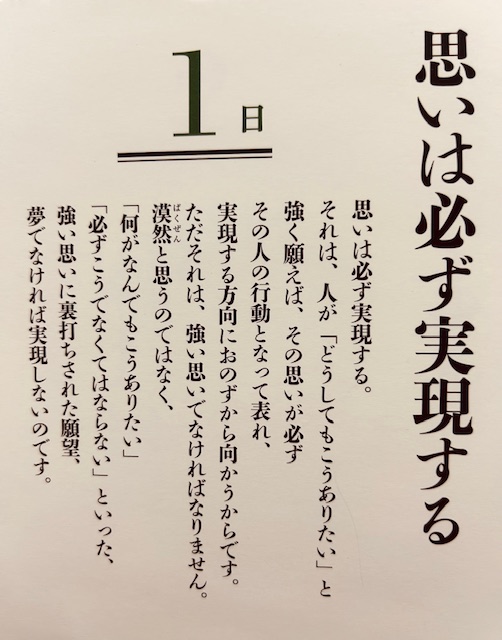 思いは必ず実現する
1日
思いは必ず実現する。
それは、人が「どうしてもこうありたい」と
強く願えば、その思いが必ず
その人の行動となって表れ、
実現する方向におのずから向かうからです。
ただそれは、強い思いでなければなりません。
漠然と思うのではなく、
ばくぜん
「何がなんでもこうありたい」
「必ずこうでなくてはならない」といった、
強い思いに裏打ちされた願望、
夢でなければ実現しないのです。